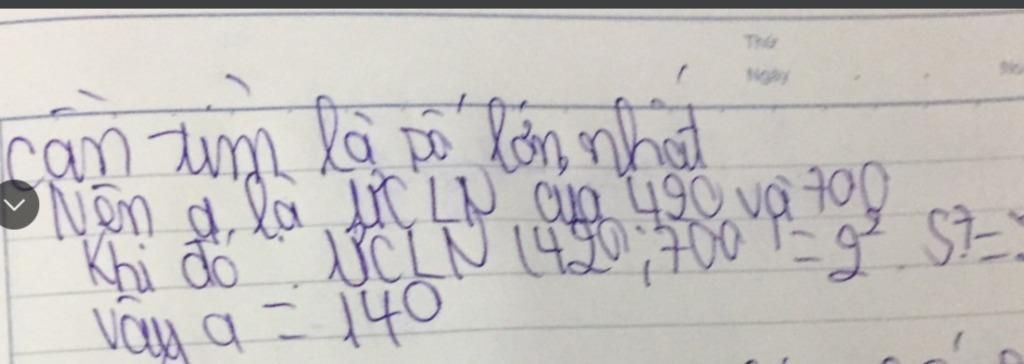 Thứ
Ngày
cần tìm là số lớn nhất
Nên a là ƯCLN của 420 và 700
Khi đó ƯCLN (420; 700) = 2² 5.7 =
Vậy a = 140